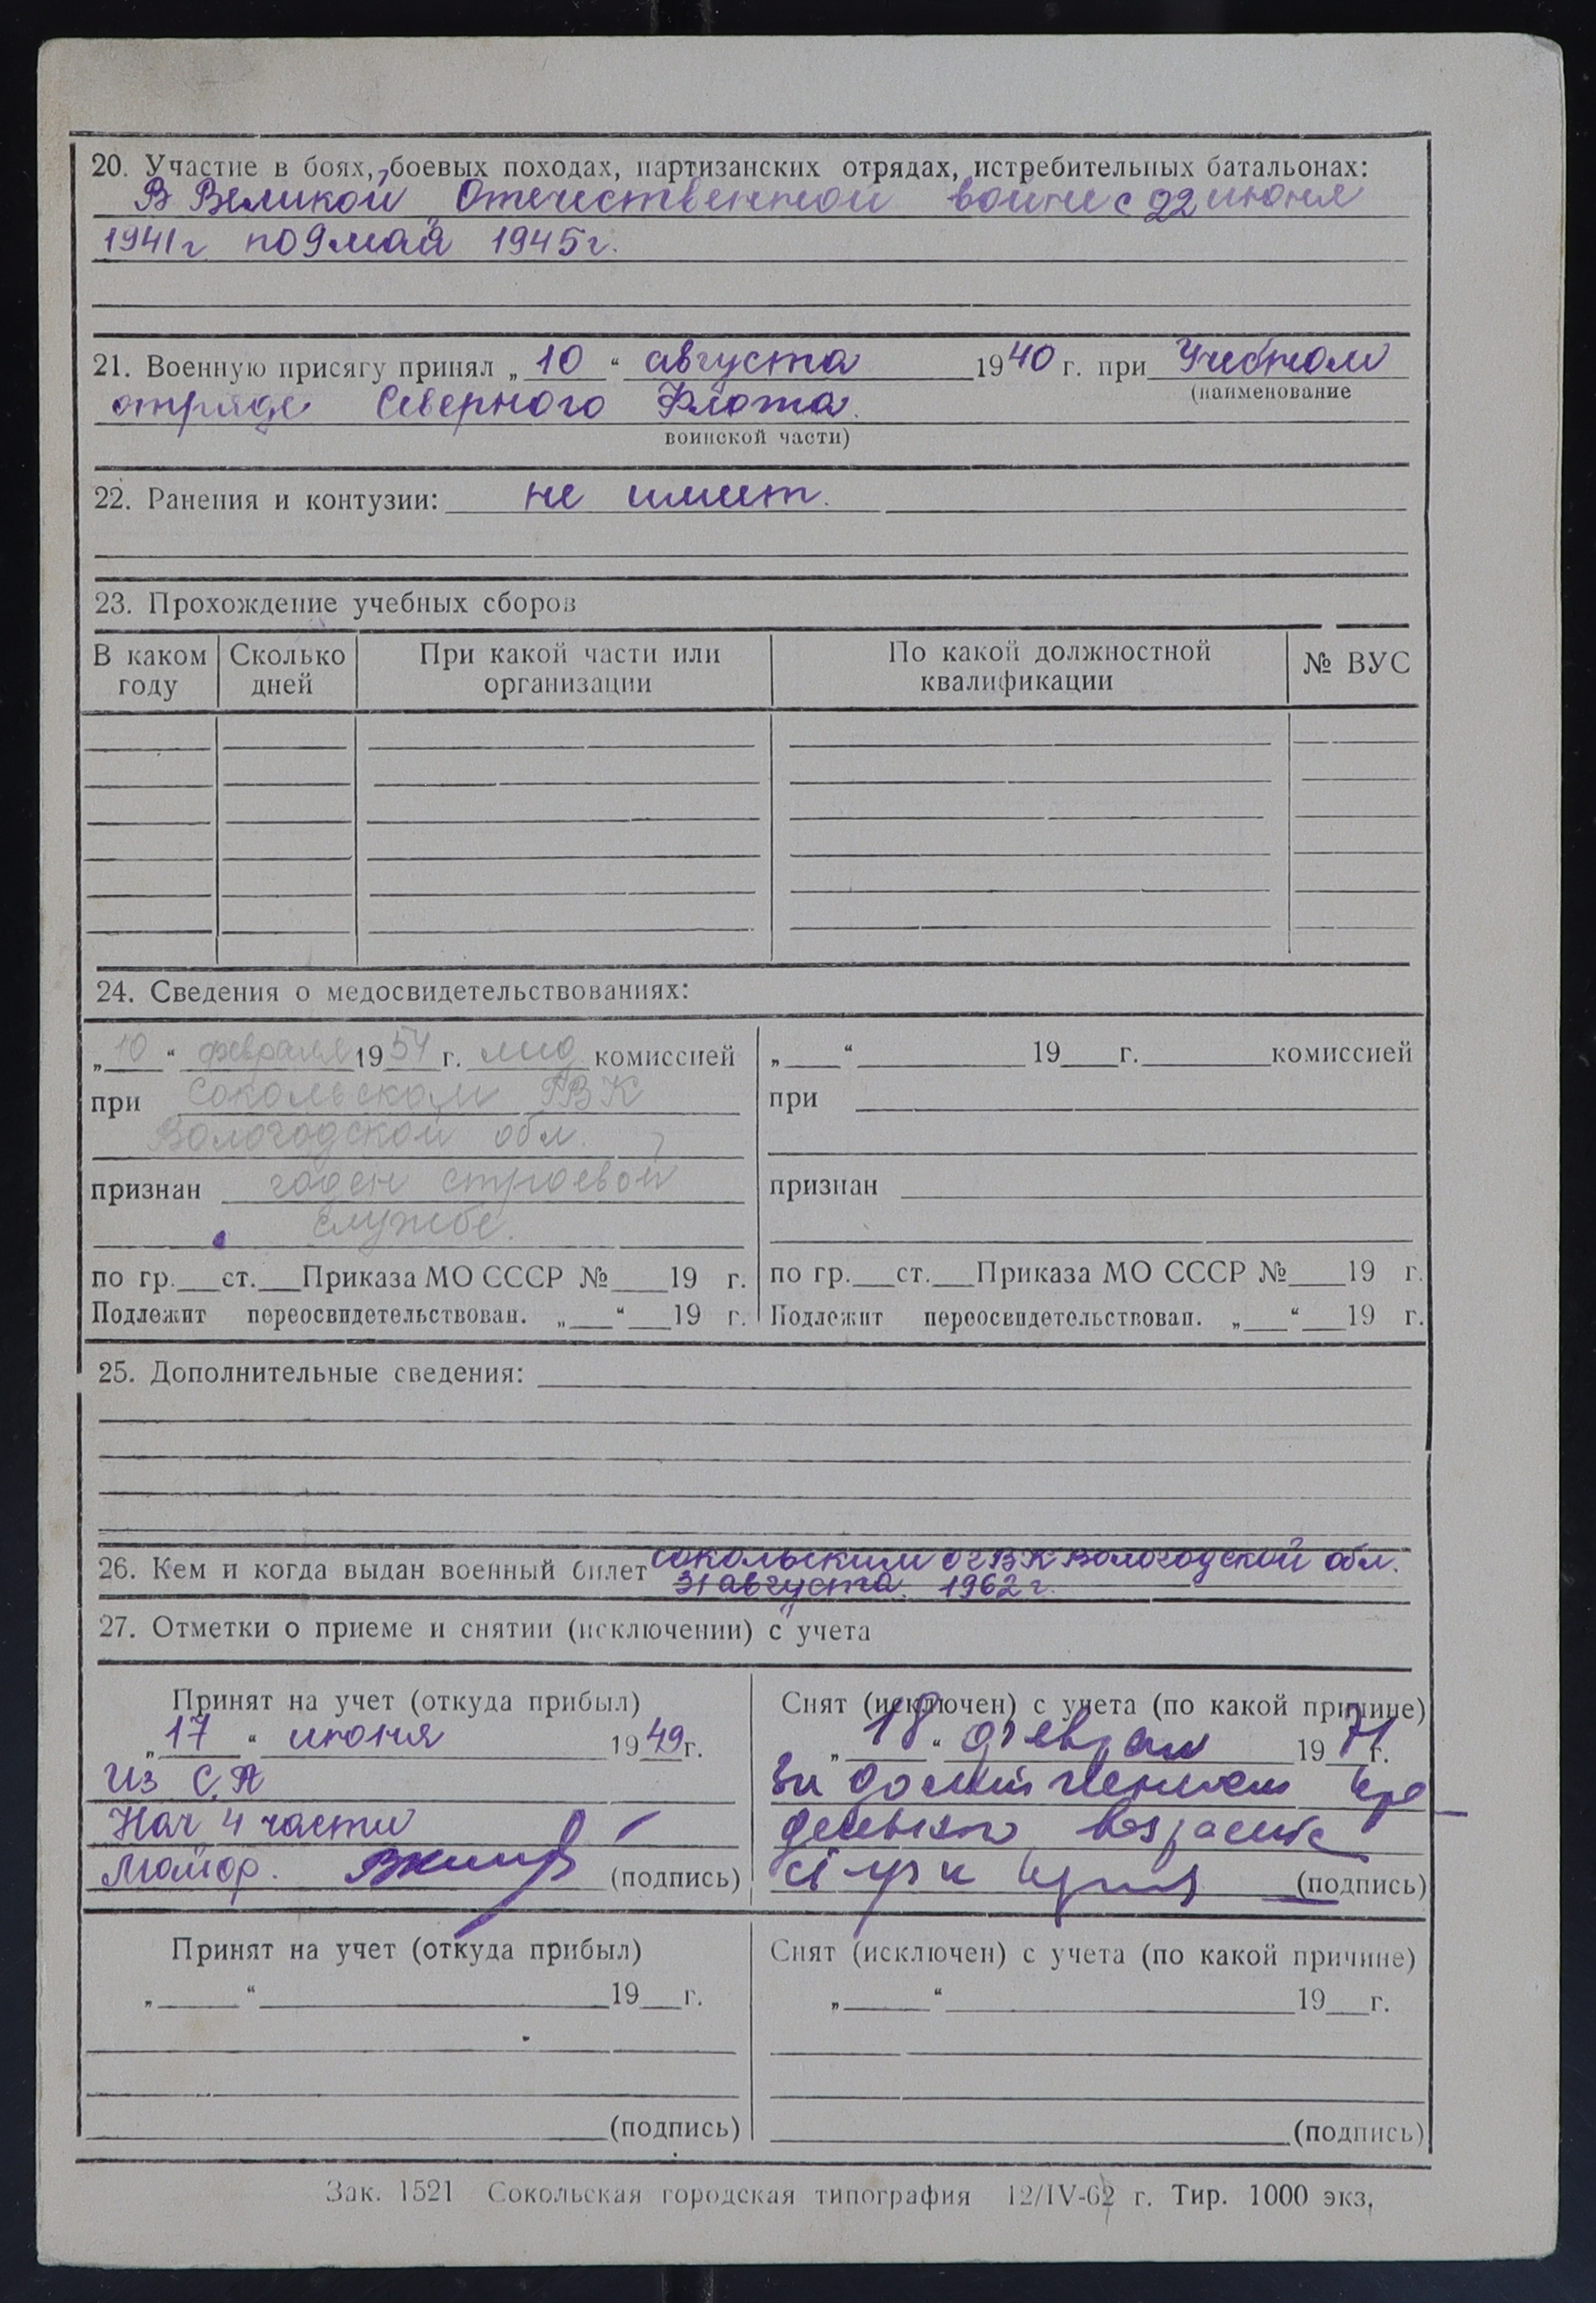 20. Участие в боях, боевых походах, партизанских отрядах, истребительных батальонах:
В Великой Отечественной войне с 22 июня
1941г по 9 мая 1945г.
21. Военную присягу принял „10“ августа 1940 г. при Учебном
(наименование
отряде Северного Флота.
воинской части)
22. Ранения и контузии: не имеет.
23. Прохождение учебных сборов
В каком году | Сколько дней | При какой части или организации | По какой должностной квалификации | № ВУС
24. Сведения о медосвидетельствованиях:
„10“ февраля 1954 г. мед комиссией
при Сокольском ГВК
Вологодской обл.
признан годен строевой
службе.
по гр.___ст.___Приказа МО СССР №___19 г.
Подлежит переосвидетельствован. „___“___19 г.
„___“ ___ 19___г.___комиссией
при
признан
по гр.___ст.___Приказа МО СССР №___19 г.
Подлежит переосвидетельствован. „___“___19 г.
25. Дополнительные сведения:
26. Кем и когда выдан военный билет Сокольским ОГВК Вологодской обл.
31 августа 1962 г.
27. Отметки о приеме и снятии (исключении) с учета
Принят на учет (откуда прибыл)
„17“ июня 1949г.
Из С.А
Нач 4 части
Майор. (подпись)
Снят (исключен) с учета (по какой причине)
„18“ феврал 1971г.
За достижением пре
дельного возраста
(подпись)
Принят на учет (откуда прибыл)
„___“___19___г.
(подпись)
Снят (исключен) с учета (по какой причине)
„___“___19___г.
(подпись)
Зак. 1521 Сокольская городская типография 12/IV-62 г. Тир. 1000 экз.